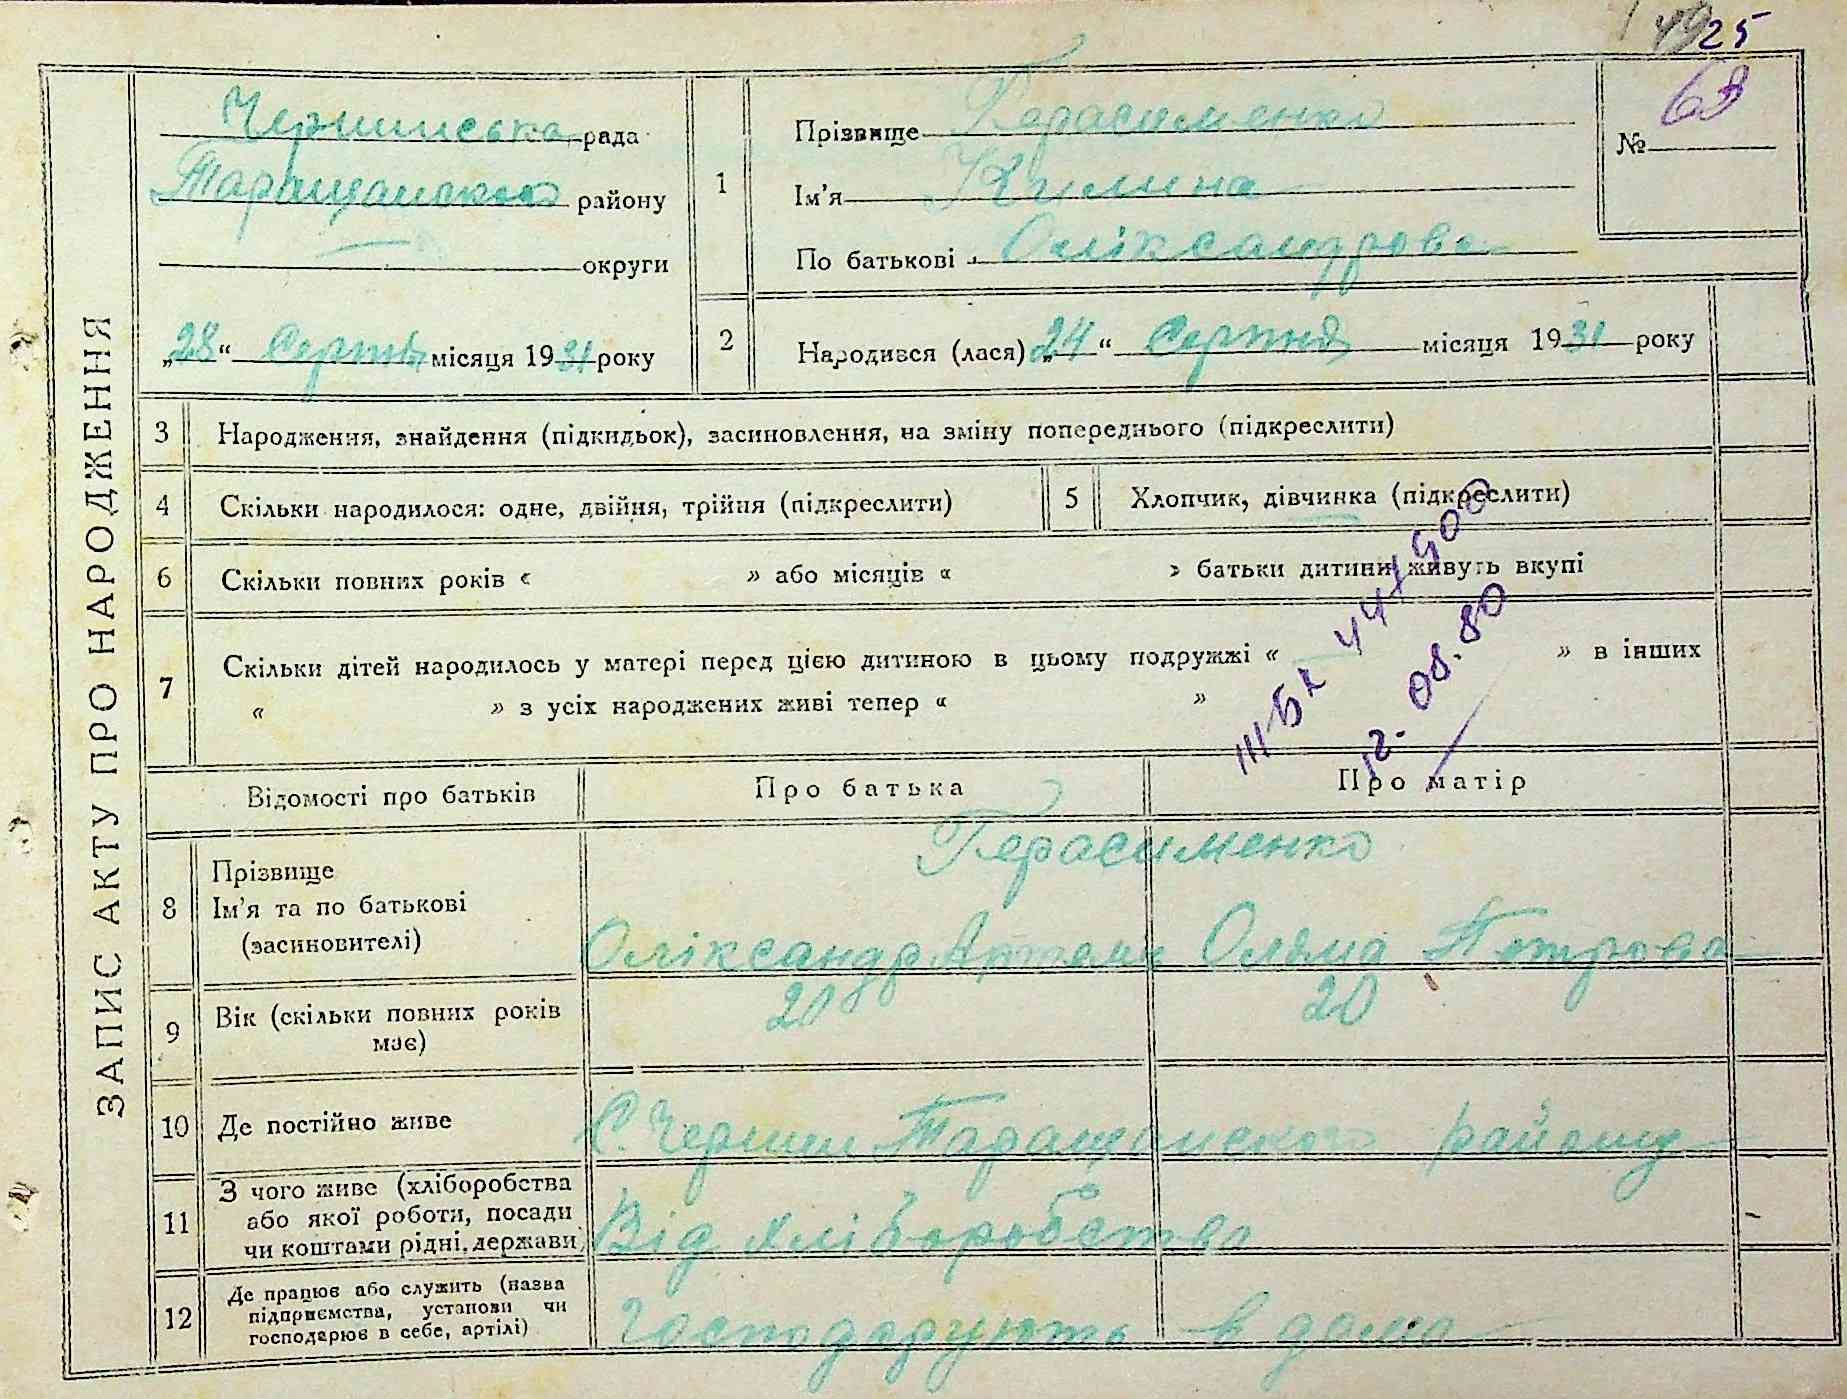 25
ЗАПИС АКТУ ПРО НАРОДЖЕННЯ
Чернинська рада
Таращанського району
округи
„28“ Серпня місяця 1931 року
1
Прізвище Герасименко
Ім'я Килина
По батькові Оліксандрова
№ 63
2
Народився (лася) „24“ Серпня місяця 1931 року
3 Народження, знайдення (підкидьок), засиновлення, на зміну попереднього (підкреслити)
4 Скільки народилося: одне, двійня, трійня (підкреслити) 5 Хлопчик, дівчинка (підкреслити)
6 Скільки повних років « » або місяців « » батьки дитини живуть вкупі
7 Скільки дітей народилось у матері перед цією дитиною в цьому подружжі « » в інших
« » з усіх народжених живі тепер « »
08.80
Відомості про батьків Про батька Про матір
8 Прізвище
Ім'я та по батькові
(засиновителі)
Герасименко
Оліксандр Артеми Оляна Петрова
9 Вік (скільки повних років має) 20 20
10 Де постійно живе С. Чернин Таращанского району
11 З чого живе (хліборобства
або якої роботи, посади
чи коштами рідні, держави)
Від хліборобства
12 Де працює або служить (назва
підприємства, установи чи
господарює в себе, артілі)
Господарують в дома